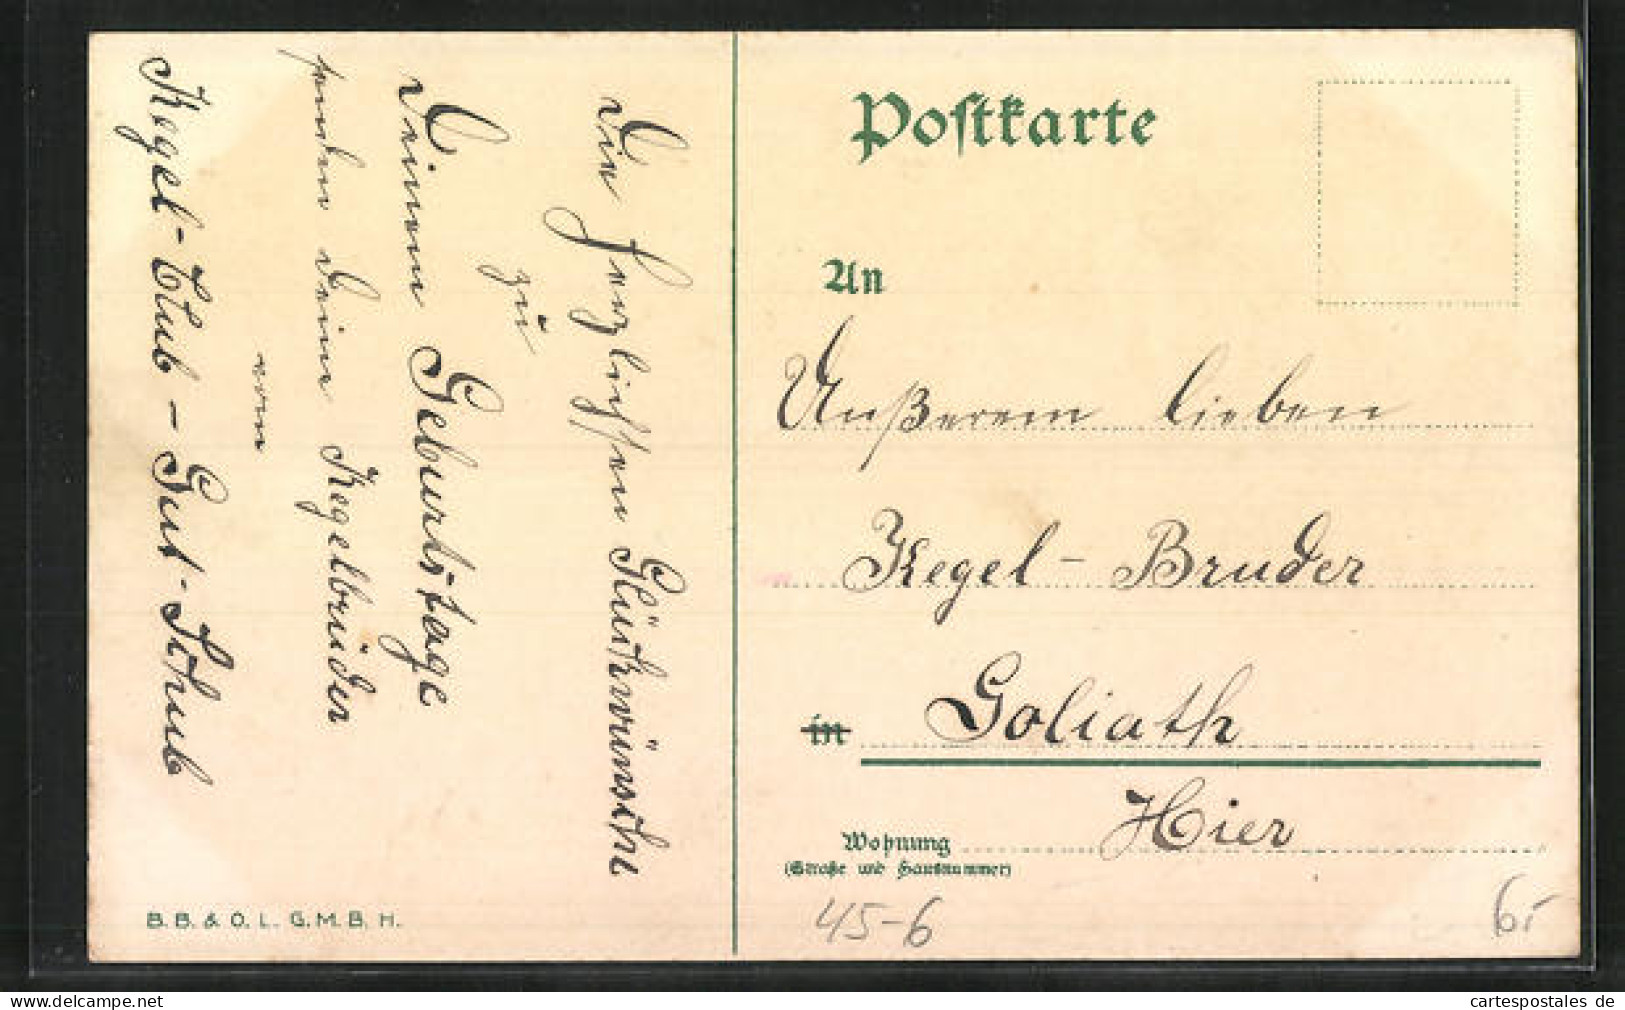 Die herzlichsten Glückwünsche
zu
Deinem Geburtstage
senden Deine Kegelbrüder
vom
Kegel-Club - Gut-Schub
B. B. & O. L. G. M. B. H.
Postkarte
An
Unßerem lieben
Kegel-Bruder
in Goliath
Wohnung Hier
(Straße und Hausnummer)
45-6
cartespostales de